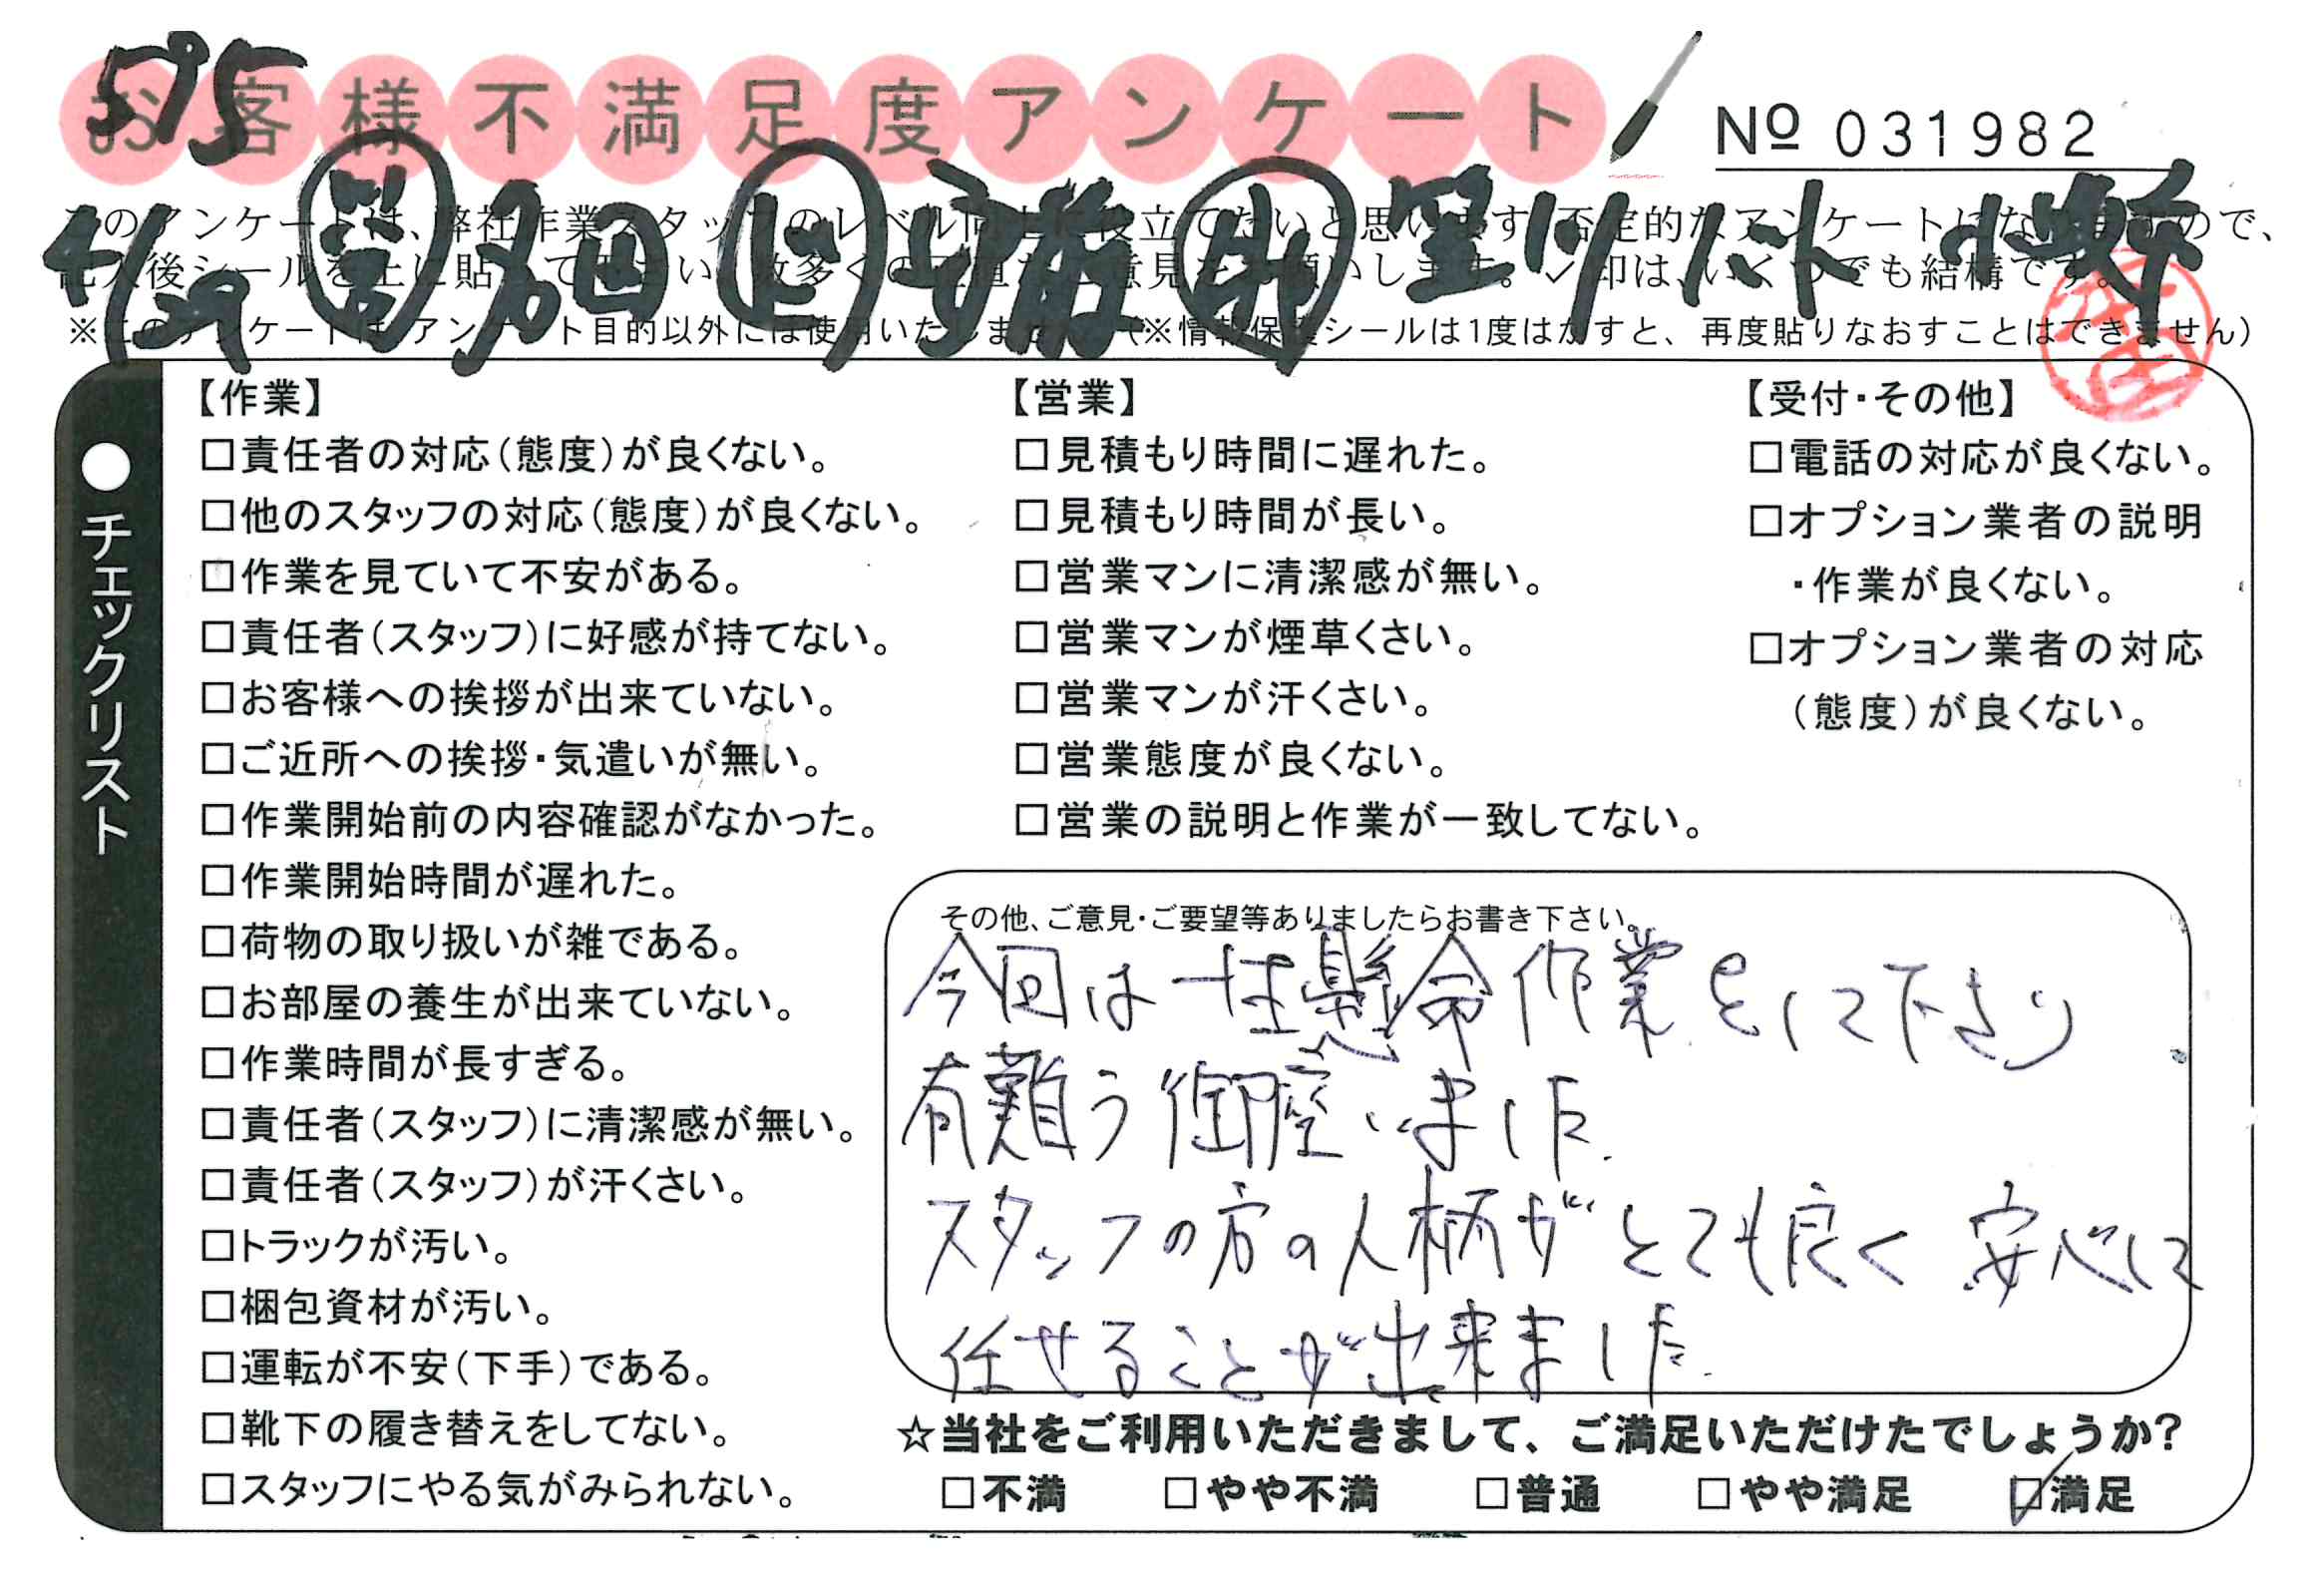 575
お客様不満足度アンケート
Nº 031982
4/29 営 多田 ド 安藤 助 星川 パート 小野
このアンケートは、弊社作業スタッフのレベル向上に役立てたいと思います。否定的なアンケートになりますので、
記入後シールを上に貼って下さい。数多くの正直なご意見をお願いします。✓印は、いくつでも結構です。
※このアンケートは、アンケート目的以外には使用いたしません。(※情報保護シールは1度はがすと、再度貼りなおすことはできません)
●チェックリスト
【作業】
□責任者の対応(態度)が良くない。
□他のスタッフの対応(態度)が良くない。
□作業を見ていて不安がある。
□責任者(スタッフ)に好感が持てない。
□お客様への挨拶が出来ていない。
□ご近所への挨拶・気遣いが無い。
□作業開始前の内容確認がなかった。
□作業開始時間が遅れた。
□荷物の取り扱いが雑である。
□お部屋の養生が出来ていない。
□作業時間が長すぎる。
□責任者(スタッフ)に清潔感が無い。
□責任者(スタッフ)が汗くさい。
□トラックが汚い。
□梱包資材が汚い。
□運転が不安(下手)である。
□靴下の履き替えをしてない。
□スタッフにやる気がみられない。
【営業】
□見積もり時間に遅れた。
□見積もり時間が長い。
□営業マンに清潔感が無い。
□営業マンが煙草くさい。
□営業マンが汗くさい。
□営業態度が良くない。
□営業の説明と作業が一致してない。
【受付・その他】
□電話の対応が良くない。
□オプション業者の説明
・作業が良くない。
□オプション業者の対応
(態度)が良くない。
その他、ご意見・ご要望等ありましたらお書き下さい。
今回は一生懸命作業をして下さり
有難う御座いました.
スタッフの方の人柄がとても良く 安心して
任せることが出来ました.
☆当社をご利用いただきまして、ご満足いただけたでしょうか?
□不満 □やや不満 □普通 □やや満足 ☑満足